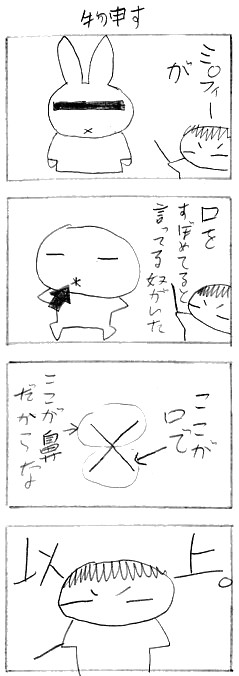 物申す
ミッフィー
が
口を
すぼめてると
言ってる奴がいた
ここが
口で
ここが鼻
だからな
以上。